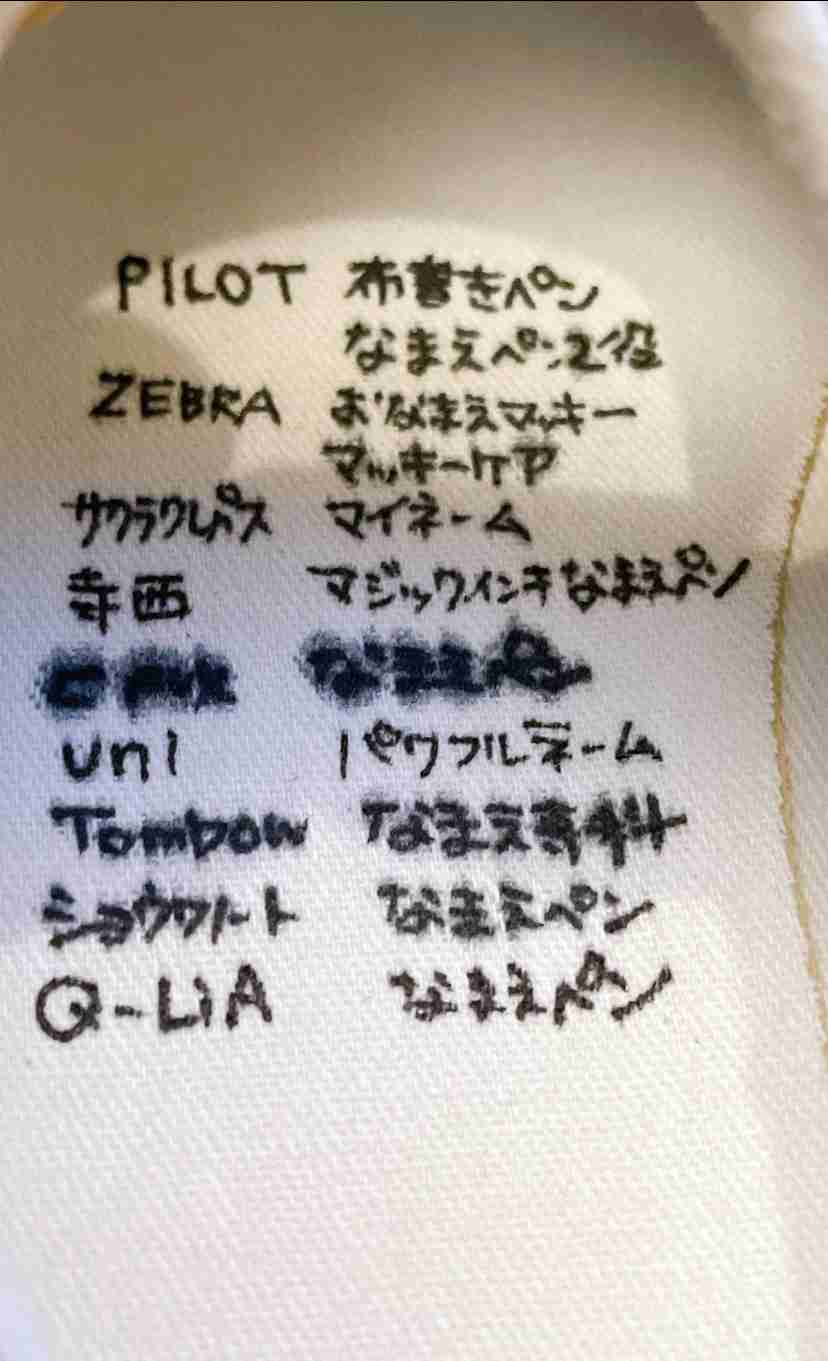 PILOT 布書きペン
なまえペン2役
ZEBRA おなまえマッキー
マッキーケア
サクラクレパス マイネーム
寺西 マジックインキなまえペン
なまえペン
uni パワフルネーム
Tombow なまえ専科
ショウワノート なまえペン
Q-LiA なまえペン